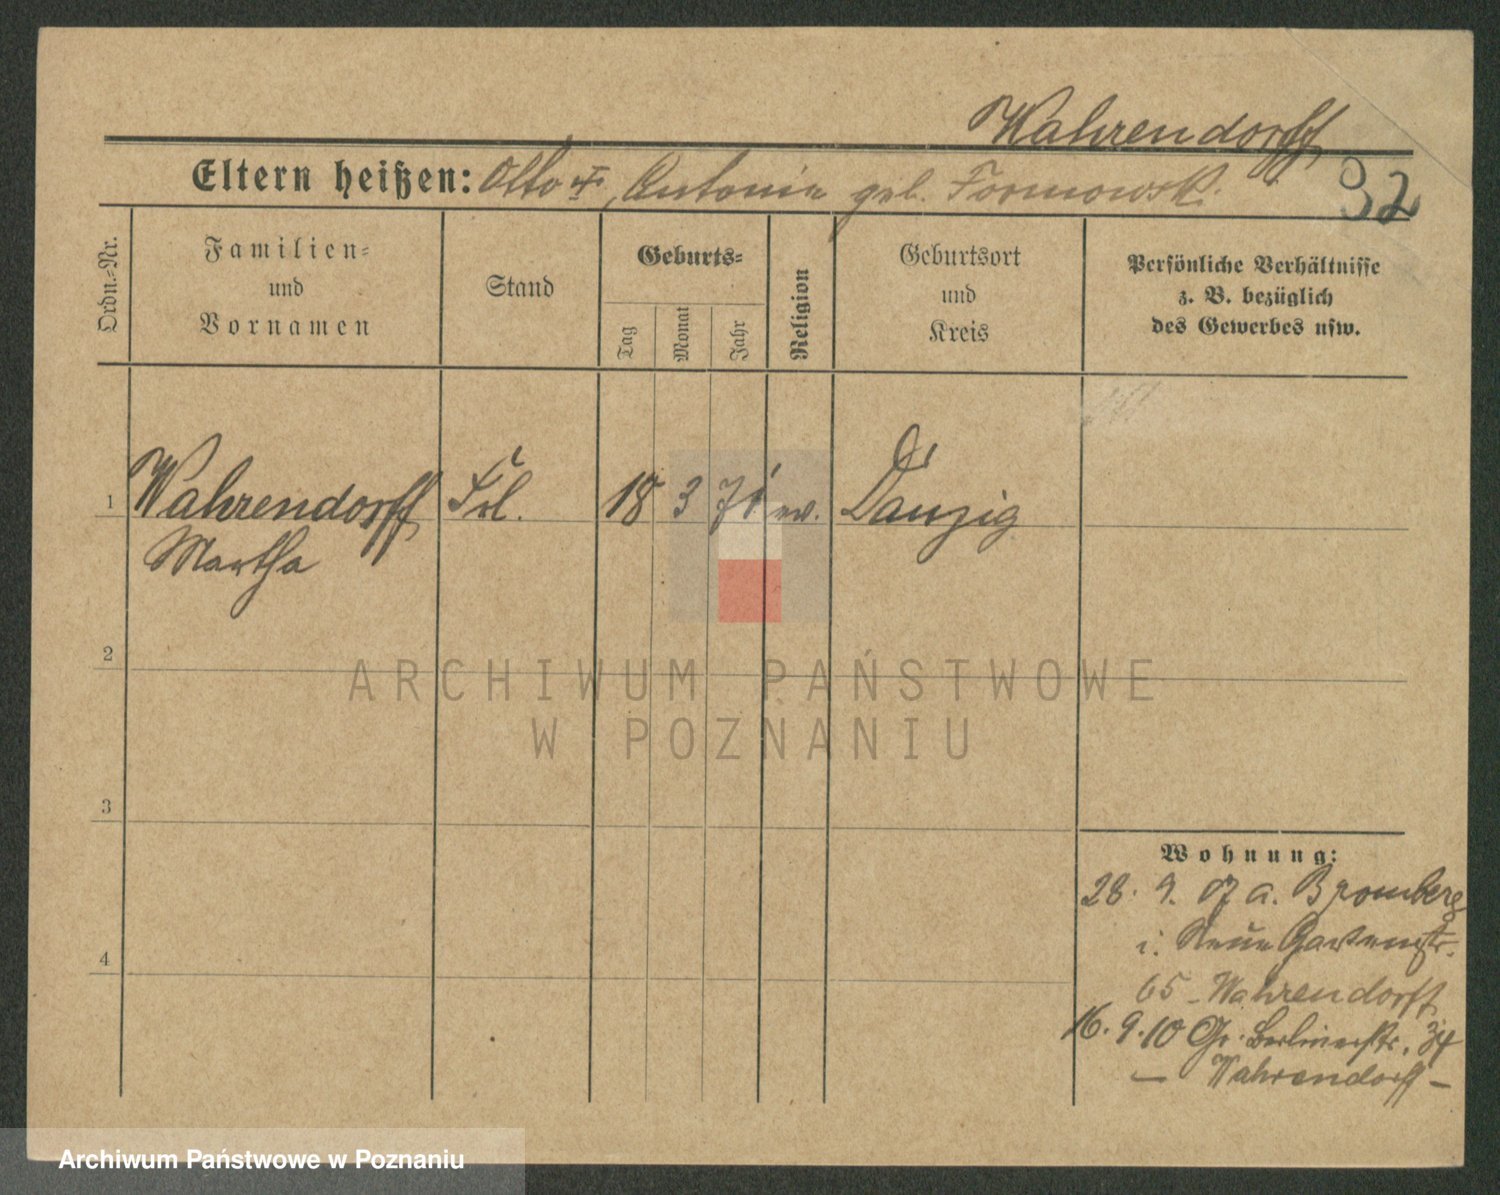 Wahrendorff
Eltern heißen: Otto †, Antonie geb. Formowski
32
Ordn.-Nr.
Familien-
und
Vornamen
Stand
Geburts-
Tag
Monat
Jahr
Religion
Geburtsort
und
Kreis
Persönliche Verhältnisse
z. B. bezüglich
des Gewerbes usw.
1 Wahrendorff Frl. 18 3 71 ev. Danzig
Martha
2
3
4
Wohnung:
28. 9. 07 a. Bromberg
i. Neue Gartenstr.
65 - Wahrendorff
16. 9. 10 Gr. Berlinerstr. 34
- Wahrendorff -
ARCHIWUM PAŃSTWOWE
W POZNANIU
Archiwum Państwowe w Poznaniu